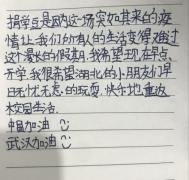 捐学豆是因为这一场突如其来的疫
情让我们所有人的生活变得难过
这个漫长的假期，我希望现在早点
开学，我很希望湖北的小朋友们早
日无忧无虑的玩耍，快乐地重返
校园生活。
中国加油
武汉加油